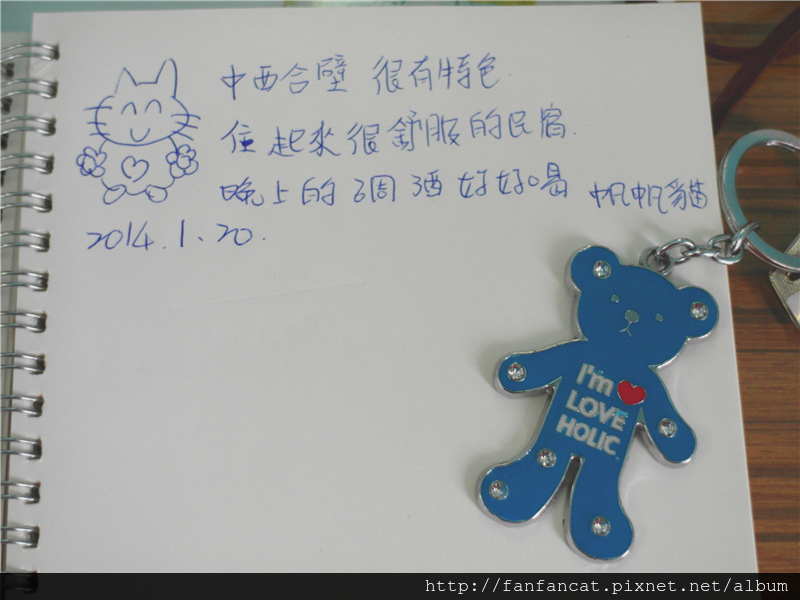 中西合壁 很有特色.
住起來很舒服的民宿.
晚上的調酒好好喝 帆帆貓
2014.1.20.
I'm
LOVE
HOLIC
http://fanfancat.pixnet.net/album